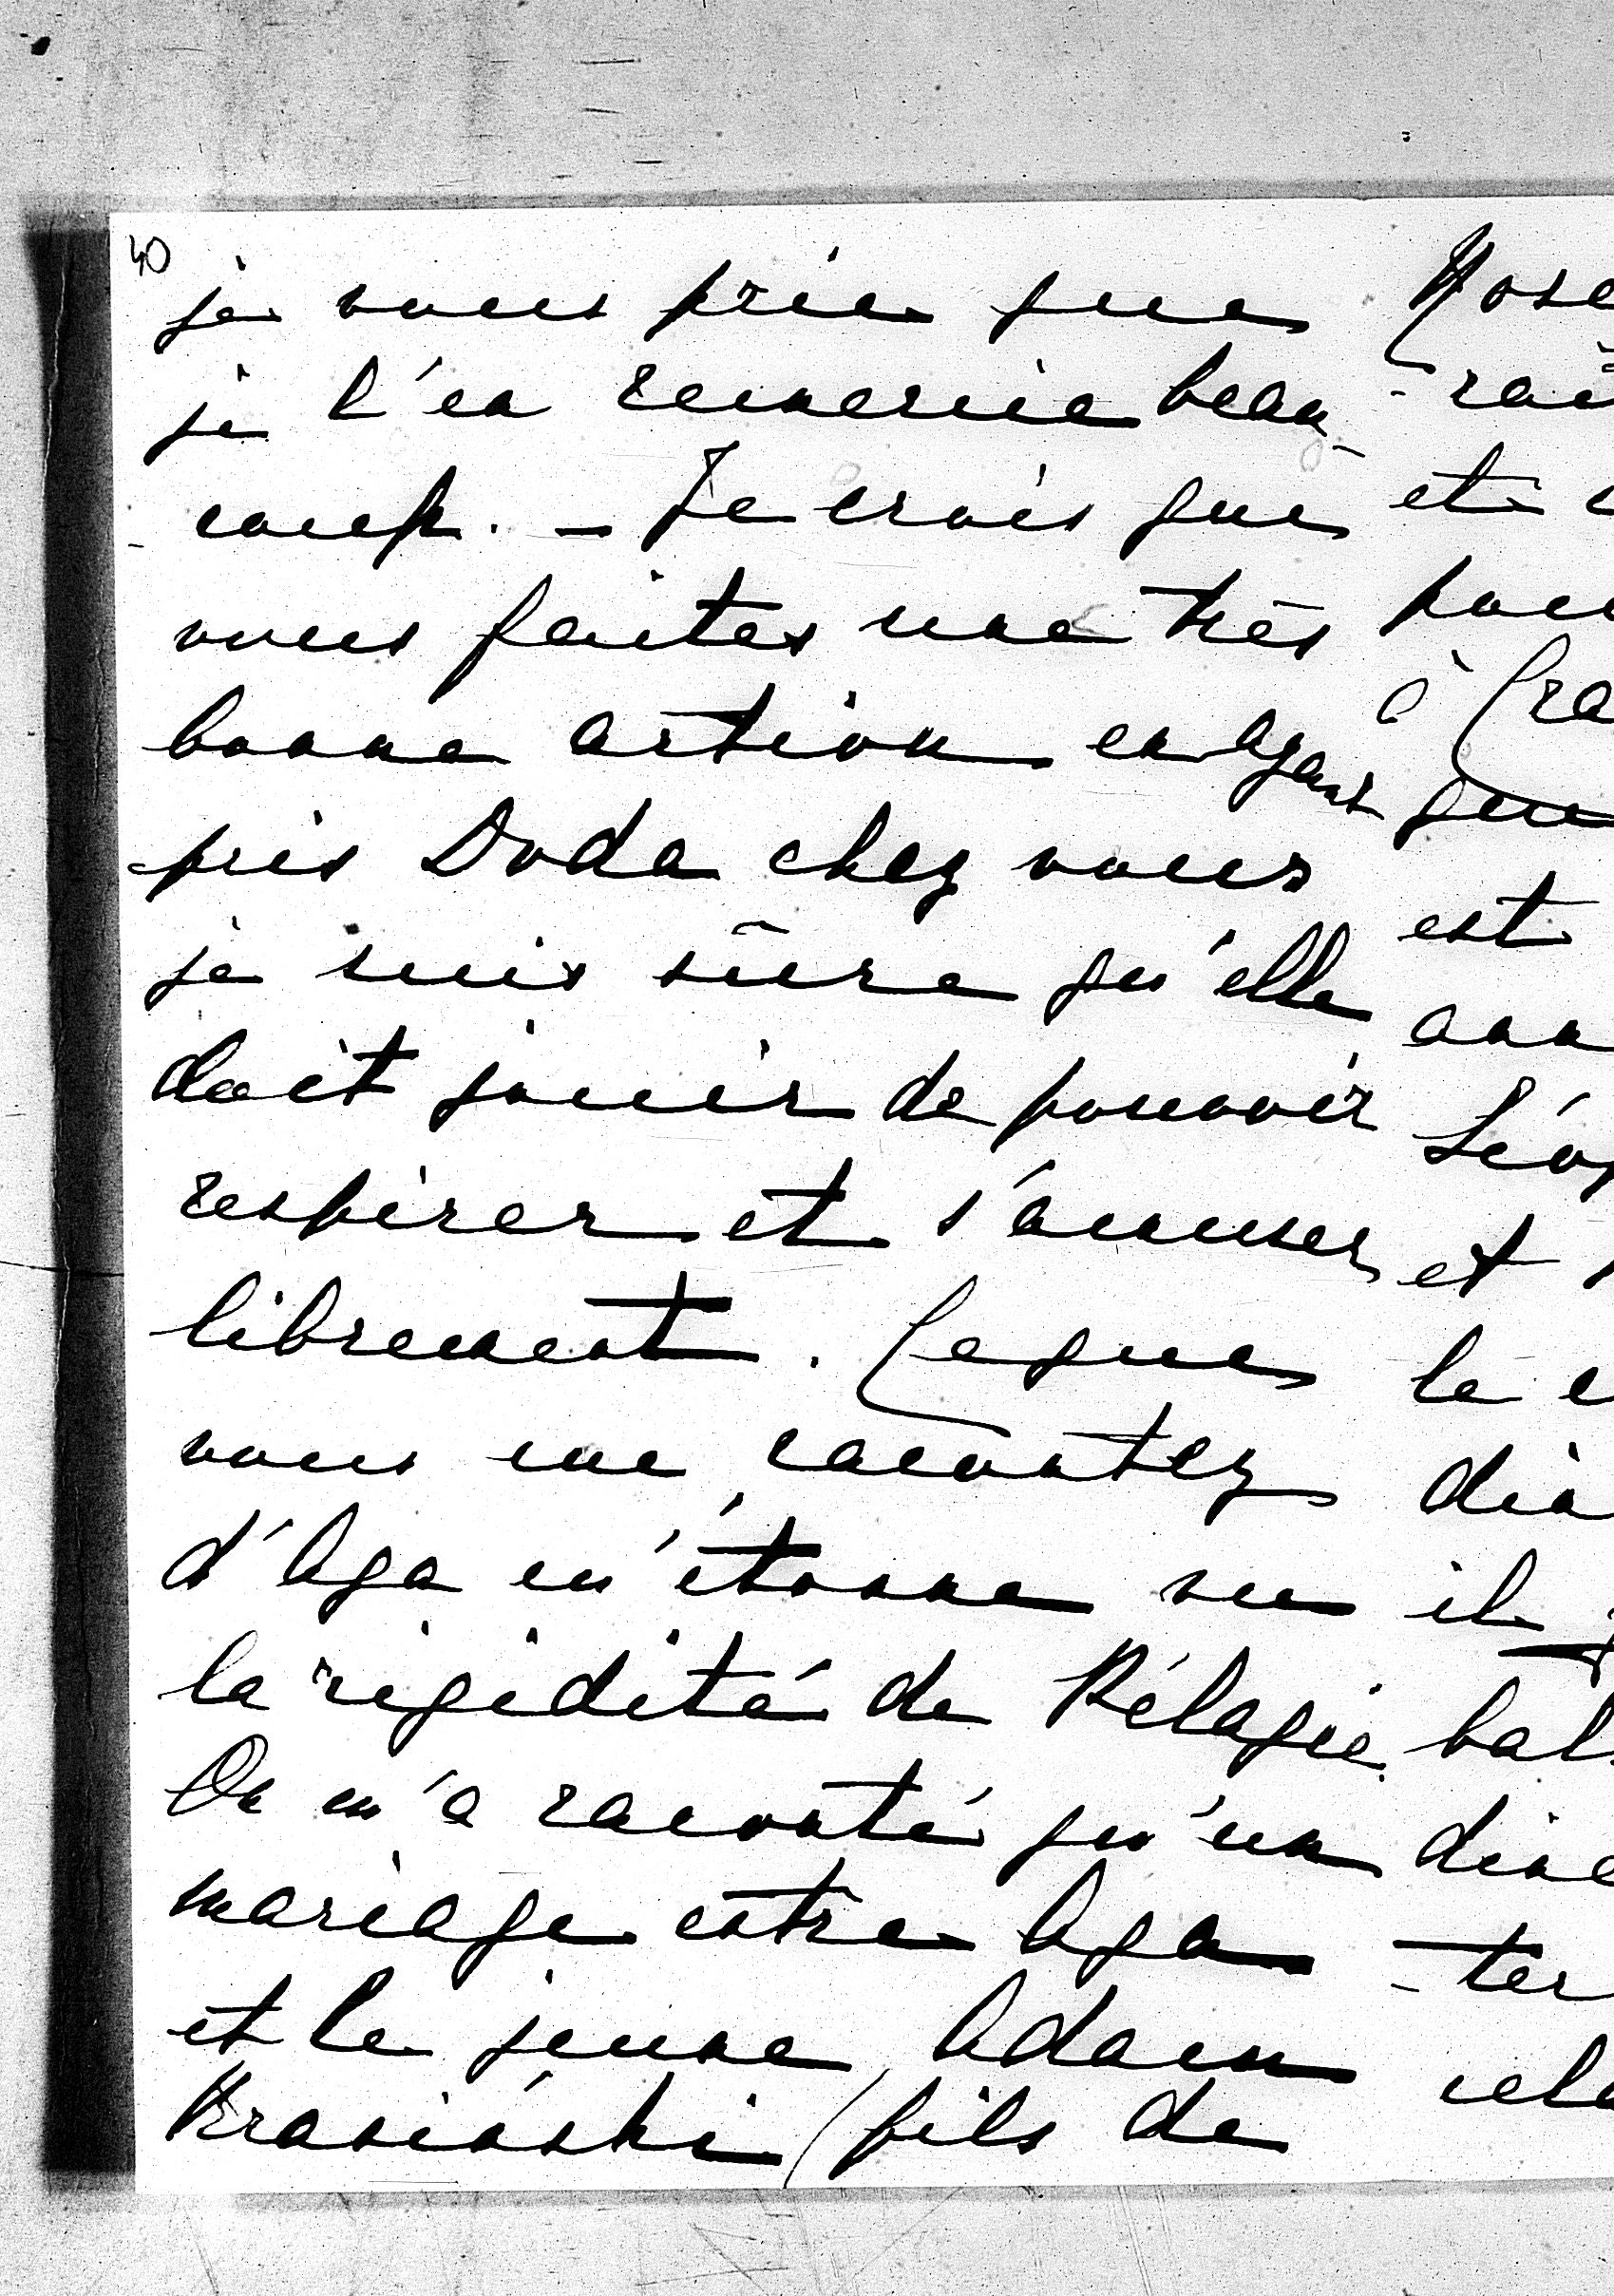 40
je vous prie que
je l'en remercie beau-
-coup. – Je crois que
vous faites une très
bonne action en ayant
pris Doda chez vous
je suis sûre qu'elle
doit jouir de pouvoir
respirer et s'amuser
librement. Ce que
vous me racontez
d'Aga m'étonne vu
la rigidité de Pélagie.
On m'a raconté qu'un
mariage entre Aga
et le jeune Adam
Krasiński (fils de
et
à
est
et
le
il